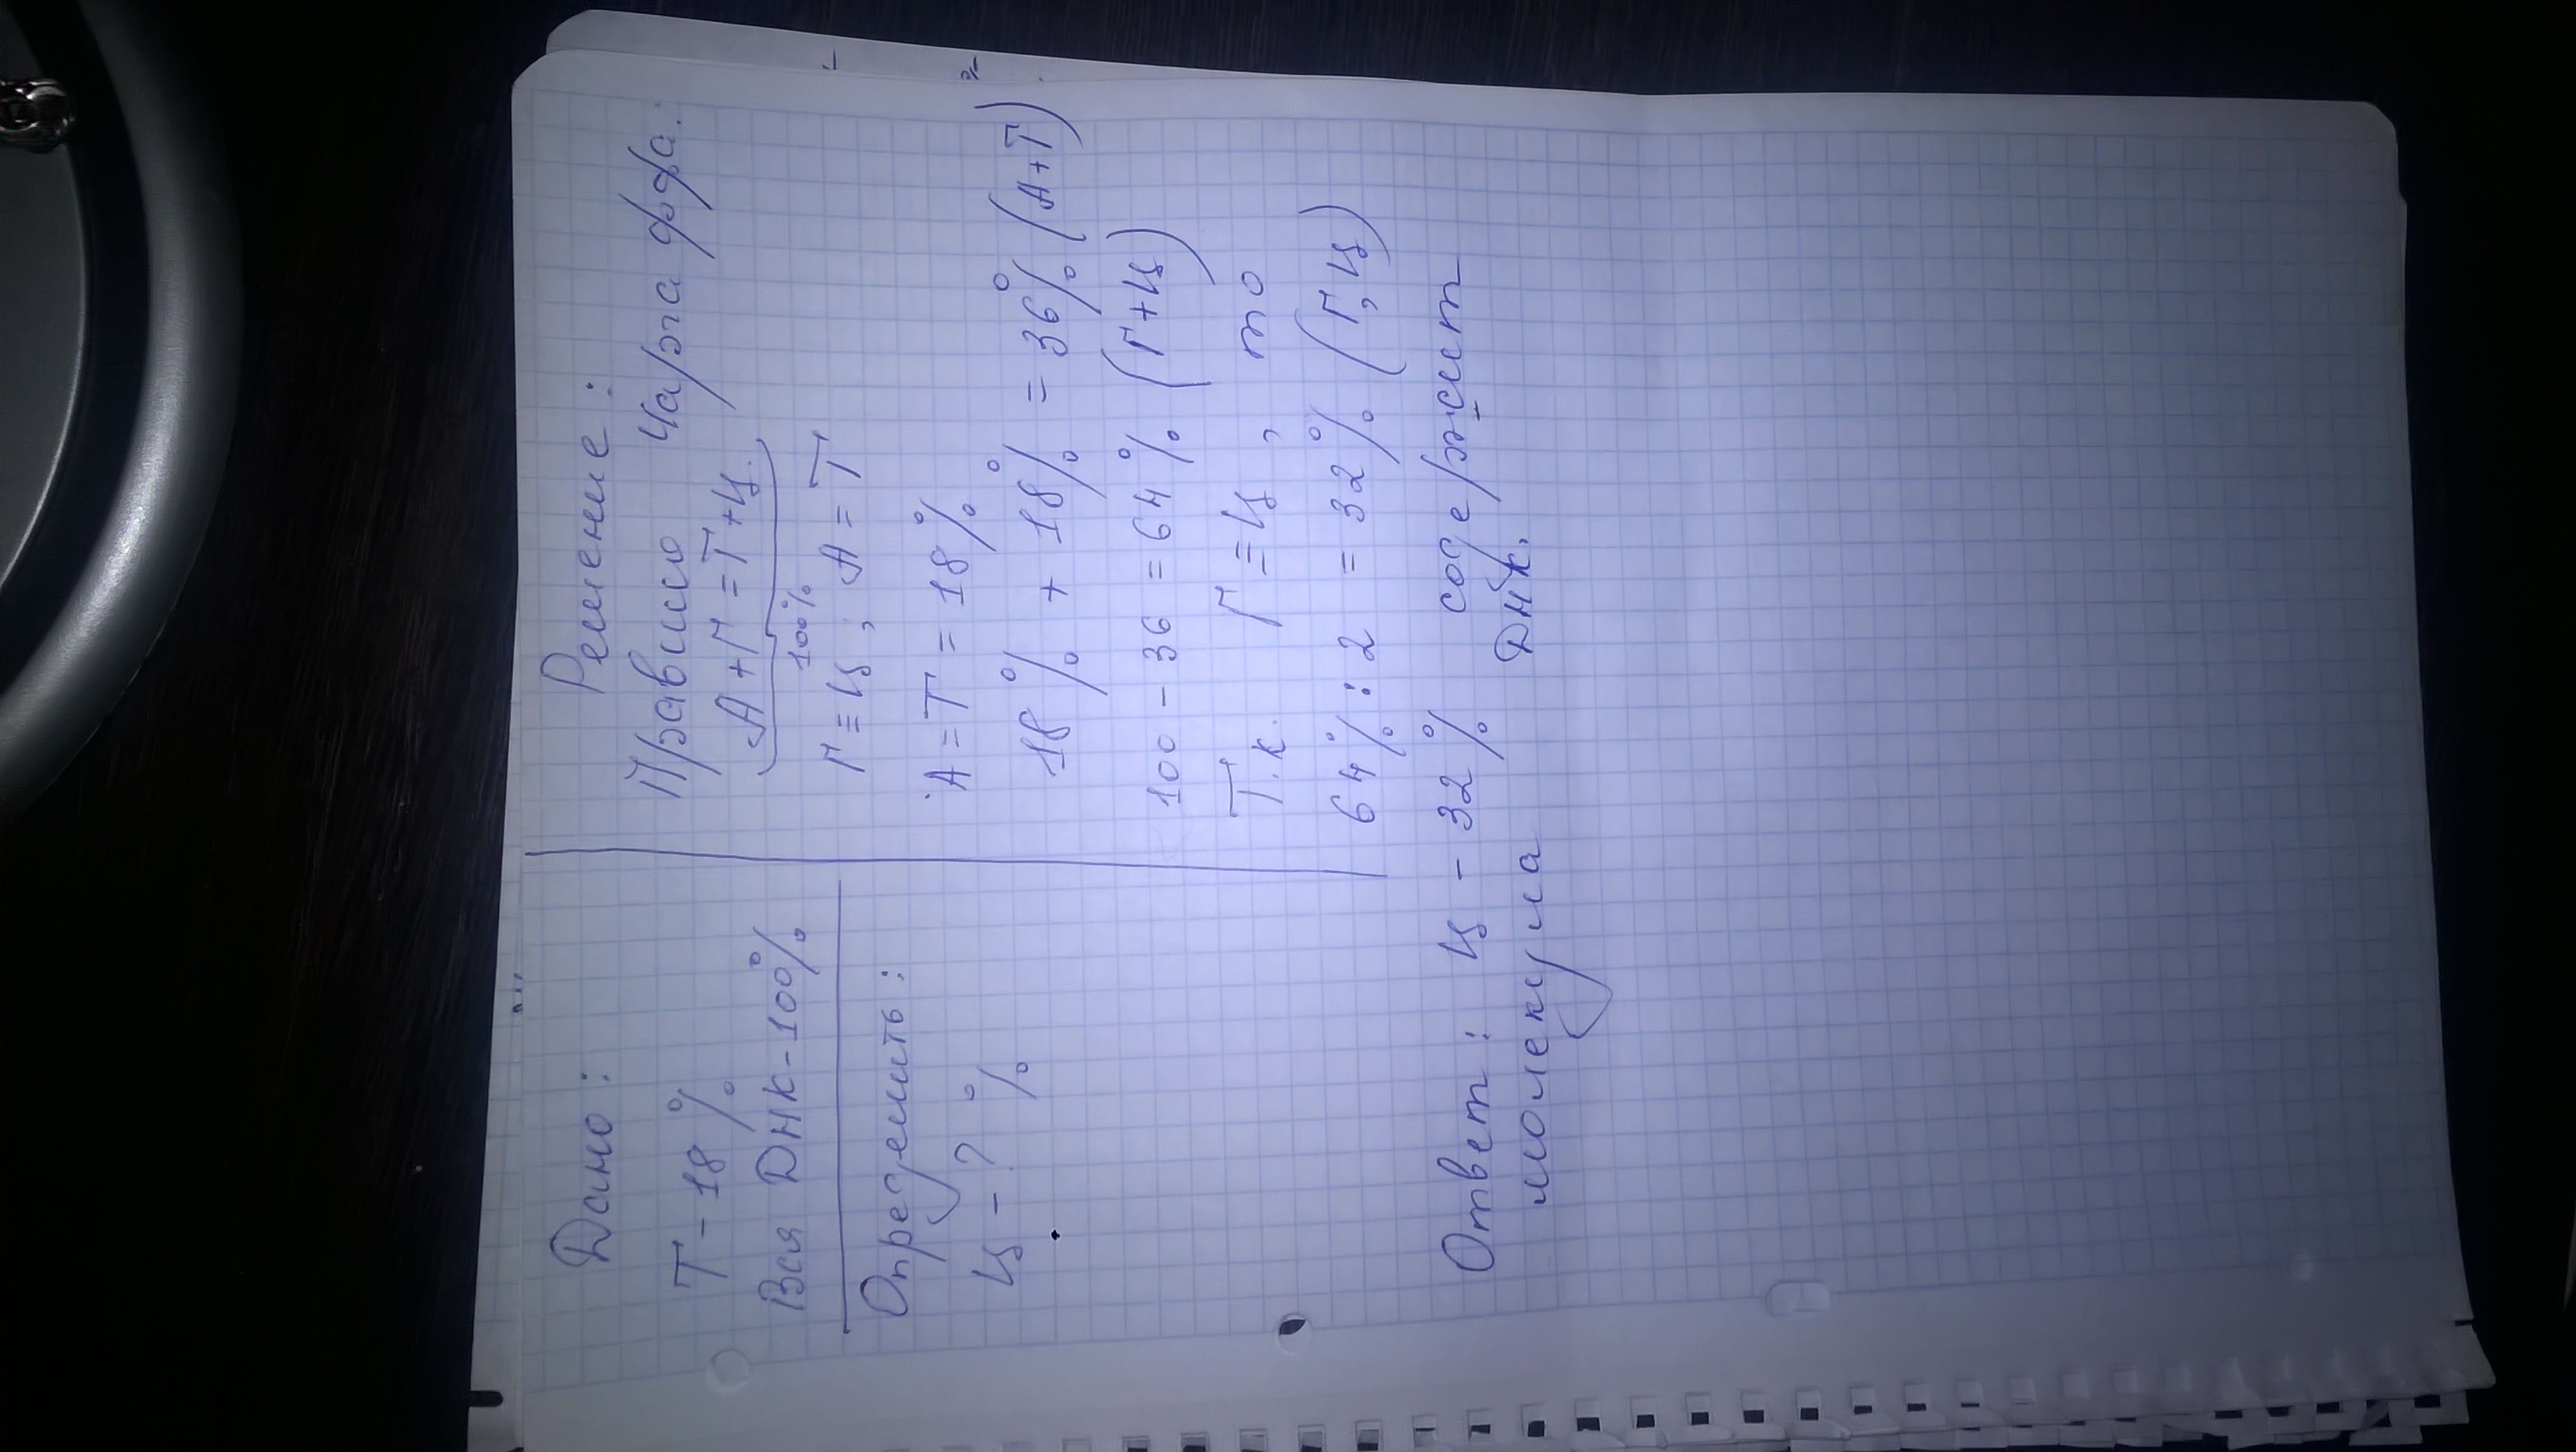 Дано:
Т - 18 %
Вся ДНК - 100%
Определить:
Ц - ? %
Решение:
Правило Чаргаффа.
А + Г = Т + Ц.
100%
Г ≡ Ц ; А = Т
А = Т = 18 %
18 % + 18% = 36% (А+Т)
100 - 36 = 64 % (Г+Ц)
Т.к. Г ≡ Ц , то
64 % : 2 = 32 % (Г, Ц)
Ответ: Ц - 32 % содержит
молекула ДНК.